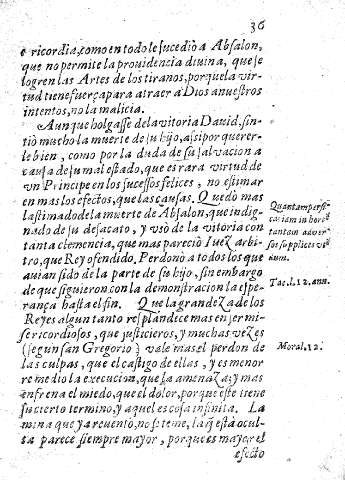 36
e ricordia, como en todo le sucedió a Absalon,
que no permite la prouidencia diuina, que se
logren las Artes de los tiranos, porque la vir-
tud tiene fuerça para atraer a Dios a nuestros
intentos, no la malicia.
Aunque holgasse de la vitoria Dauid, sin-
tiò mucho la muerte de su hijo, assi por querer-
le bien, como por la duda de su saluacion a
causa de su mal estado, que es rara virtud de
vn Principe en los sucessos felices, no estimar
en mas los efectos, que las causas. Quedò mas
lastimado de la muerte de Absalon, que indig-
nado de su desacato, y vsò de la vitoria con
tanta clemencia, que mas pareciò Iuez arbi-
tro, que Rey ofendido. Perdonò a todos los que
auian sido de la parte de su hijo, sin embargo
de que siguieron con la demonstracion la espe-
rança hasta el fin. Que la grandeza de los
Reyes algun tanto resplandece mas en ser mi-
sericordiosos, que justicieros, y muchas vezes
(segun san Gregorio) vale mas el perdon de
las culpas, que el castigo de ellas, y es menor
remedio la execucion, que la amenaza; y mas
enfrena el miedo, que el dolor, porque este tiene
su cierto termino, y aquel es cosa infinita. La
mina que ya rebentò, no se teme, la que està ocul-
ta parece siempre mayor, porque es mayor el
efecto
Quantam persi-
cariam in hore
tantam aduer-
sos supplices vi
tium.
Tac. l. 12. ann.
Moral. 12.